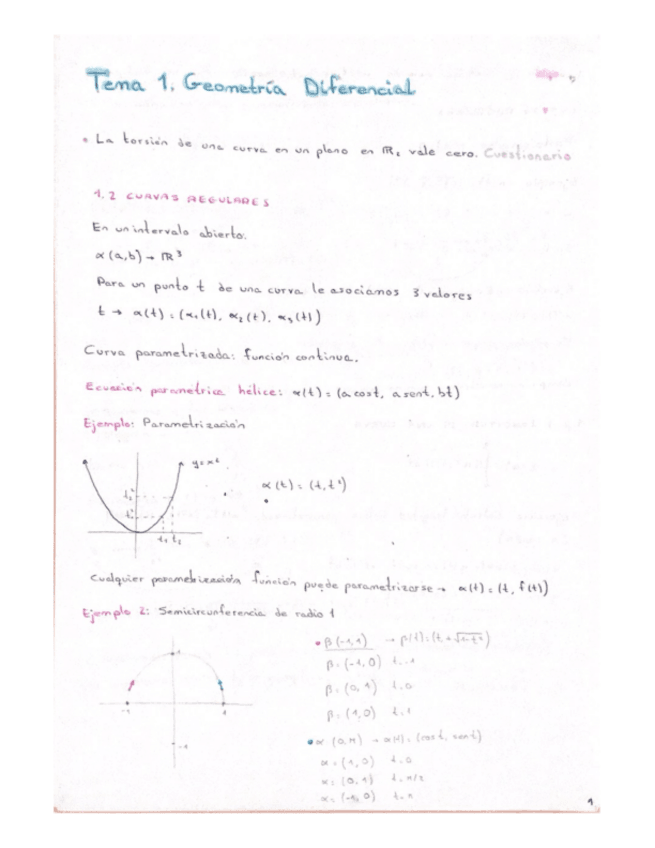 Tema 1. Geometría Diferencial
• La torsión de una curva en un plano en ℝ, vale cero. Cuestionario
1.2 CURVAS REGULARES
En un intervalo abierto:
α (a,b) → ℝ³
Para un punto t de una curva le asociamos 3 valores
t → α(t) = (α₁(t), α₂(t), α₃(t))
Curva parametrizada: función continua.
Ecuación parametrica hélice: α(t) = (a cost, a sent, bt)
Ejemplo: Parametrización
y=x²
α(t) = (t, t²)
t₁ t₂
Cualquier parametrización función puede parametrizarse → α(t) = (t, f(t))
Ejemplo 2: Semicircunferencia de radio 1
• β (-1,1) → β(t) =
β = (-1,0) t=-1
β = (0,1) t=0
β = (1,0) t=1
• α (0,π) → α(t) = (cost, sent)
α = (1,0) t=0
α = (0,1) t=π/2
α = (-1,0) t=π
1
-1
1
-1
1